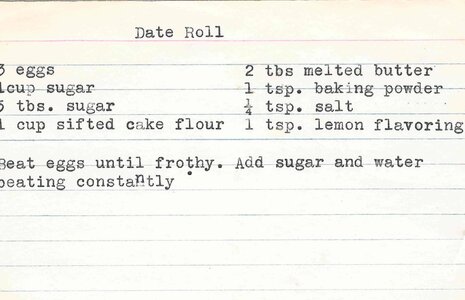 Date Roll
3 eggs 2 tbs melted butter
1cup sugar 1 tsp. baking powder
3 tbs. sugar ¼ tsp. salt
1 cup sifted cake flour 1 tsp. lemon flavoring
Beat eggs until frothy. Add sugar and water
beating constantly.